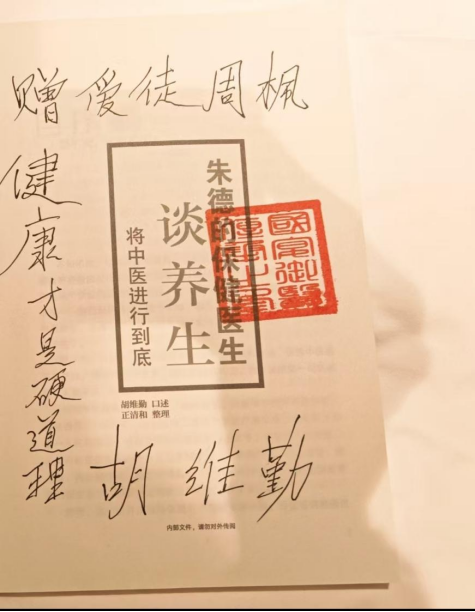 赠爱徒周枫
健康才是硬道理
朱德的保健医生
谈养生
将中医进行到底
胡维勤 口述
正清和 整理
胡维勤
内部文件，请勿对外传阅